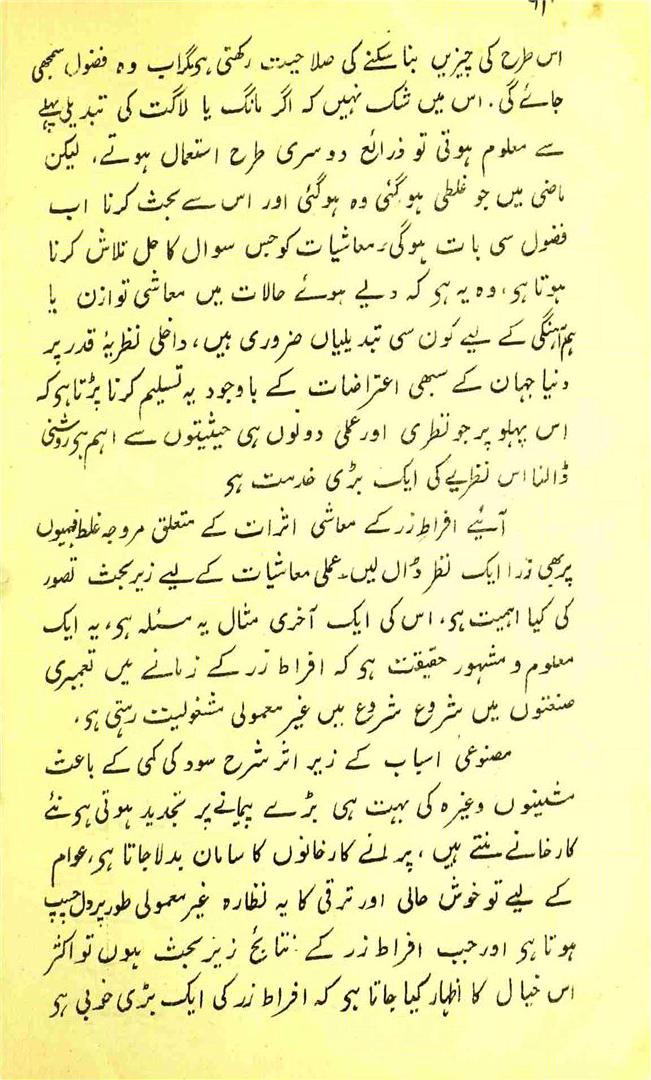 ۹۲
اس طرح کی چیزیں بنا سکنے کی صلاحیت رکھتی ہی مگر اب وہ فضول سمجھی
جائے گی. اس میں شک نہیں کہ اگر مانگ یا لاگت کی تبدیلی پہلے
سے معلوم ہوتی تو ذرائع دوسری طرح استعمال ہوتے، لیکن
ماضی میں جو غلطی ہو گئی وہ ہوگئی اور اس سے بحث کرنا اب
فضول سی بات ہوگی۔ معاشیات کو جس سوال کا حل تلاش کرنا
ہوتا ہی، وہ یہ ہی کہ دیے ہوئے حالات میں معاشی توازن یا
ہم آہنگی کے لیے کون سی تبدیلیاں ضروری ہیں، داخلی نظریۂ قدر پر
دنیا جہان کے سبھی اعتراضات کے باوجود یہ تسلیم کرنا پڑتا ہی کہ
اس پہلو پر جو نظری اور عملی دونوں ہی حیثیتوں سے اہم ہی روشنی
ڈالنا اس نظریے کی ایک بڑی خدمت ہی
آئیے افراطِ زر کے معاشی اثرات کے متعلق مروجہ غلط فہمیوں
پر بھی ذرا ایک نظر ڈال لیں۔ عملی معاشیات کے لیے زیر بحث تصور
کی کیا اہمیت ہی، اس کی ایک آخری مثال یہ مسئلہ ہی، یہ ایک
معلوم و مشہور حقیقت ہی کہ افراط زر کے زمانے میں تعمیری
صنعتوں میں شروع شروع میں غیر معمولی مشغولیت رہتی ہی،
مصنوعی اسباب کے زیر اثر شرح سود کی کمی کے باعث
مشینوں وغیرہ کی بہت ہی بڑے پیمانے پر تجدید ہوتی ہی نئے
کارخانے بنتے ہیں، پرانے کارخانوں کا سامان بدلا جاتا ہی، عوام
کے لیے تو خوش حالی اور ترقی کا یہ نظارہ غیر معمولی طور پر دل چسپ
ہوتا ہی اور جب افراط زر کے نتائج زیر بحث ہوں تو اکثر
اس خیال کا اظہار کیا جاتا ہی کہ افراط زر کی ایک بڑی خوبی ہی